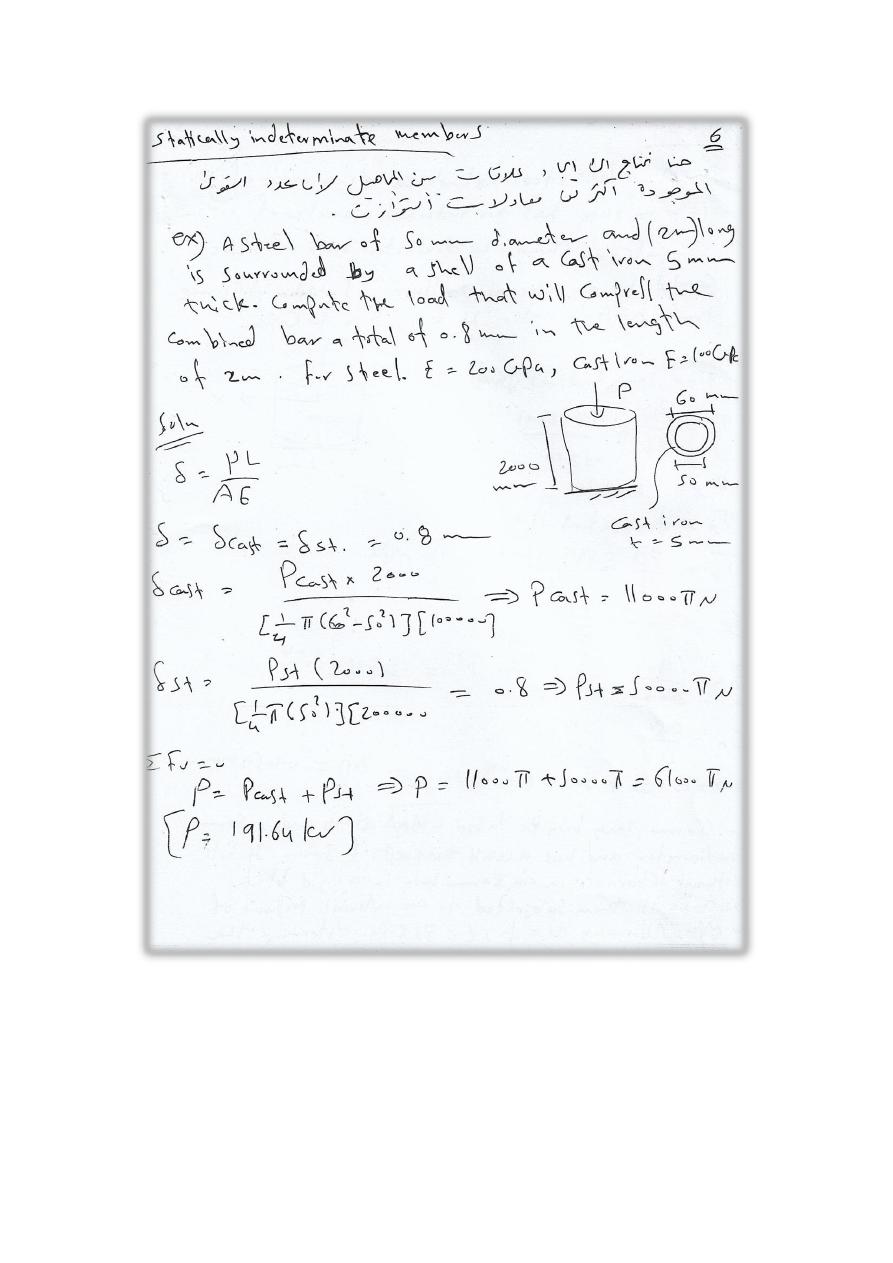 Statically indeterminate members 6
هنا نحتاج الى علاقات بين لأن عدد القوى
الموجودة أكثر من معادلات التوازن .
ex) A steel bar of 50 mm diameter and (2m) long
is sourrounded by a shell of a cast iron 5 mm
thick. Compute the load that will compress the
combined bar a total of 0.8 mm in the length
of 2m . For steel. E = 200 GPa, Cast Iron E = 100 GPa
P
60 mm
2000
mm
50 mm
Cast iron
t = 5 mm
Soln
δ = PL / AE
δ = δcast = δst. = 0.8 mm
δcast = Pcast × 2000 / [1/4 π (60² - 50²)][100000] ⇒ Pcast = 11000 π N
δst = Pst (2000) / [1/4 π (50²)][200000 = 0.8 ⇒ Pst = 50000 π N
ΣFv = 0
P = Pcast + Pst ⇒ P = 11000 π + 50000 π = 61000 π N
[P = 191.64 kN]